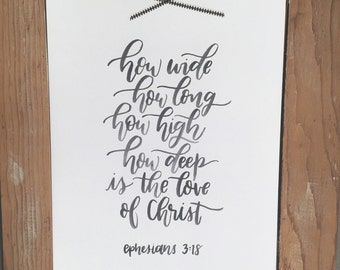 how wide
how long
how high
how deep
is the love
of Christ
ephesians 3:18